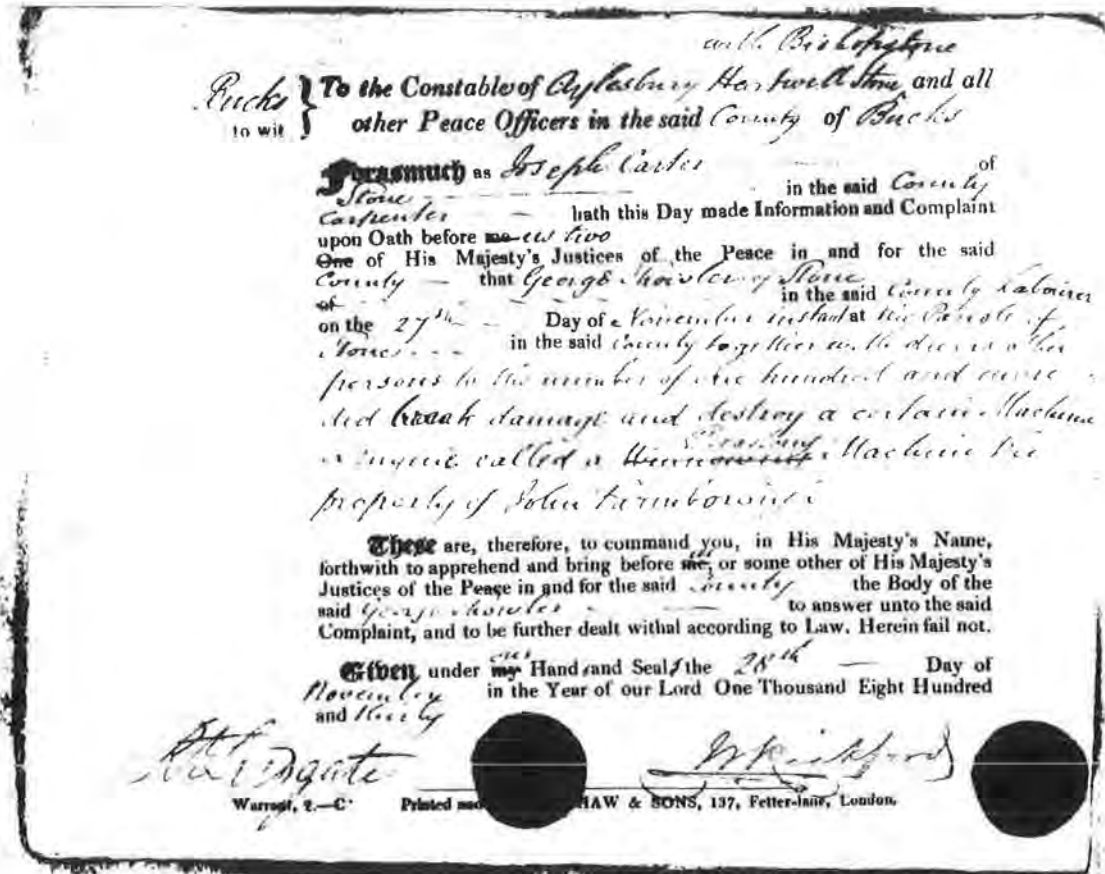 with Bishopstone
Bucks } To the Constable of Aylesbury Hartwell Stone, and all
to wit } other Peace Officers in the said County of Bucks
Forasmuch as Joseph Carter of
Stone in the said County
Carpenter hath this Day made Information and Complaint
upon Oath before me us two
One of His Majesty's Justices of the Peace in and for the said
County that George Showler of Stone
of in the said County Labourer
on the 27th Day of November instant at the Parish of
Stone in the said County together with divers other
persons to the number of one hundred and more
did break damage and destroy a certain Machine
or Engine called a Winnowing Thrashing Machine the
property of John
These are, therefore, to command you, in His Majesty's Name,
forthwith to apprehend and bring before me, us or some other of His Majesty's
Justices of the Peace in and for the said County the Body of the
said George Showler to answer unto the said
Complaint, and to be further dealt withal according to Law. Herein fail not.
Given under my our Hands and Seals the 28th Day of
November in the Year of our Lord One Thousand Eight Hundred
and thirty
Warrant, 2.—C Printed and HAW & SONS, 137, Fetter-lane, London.